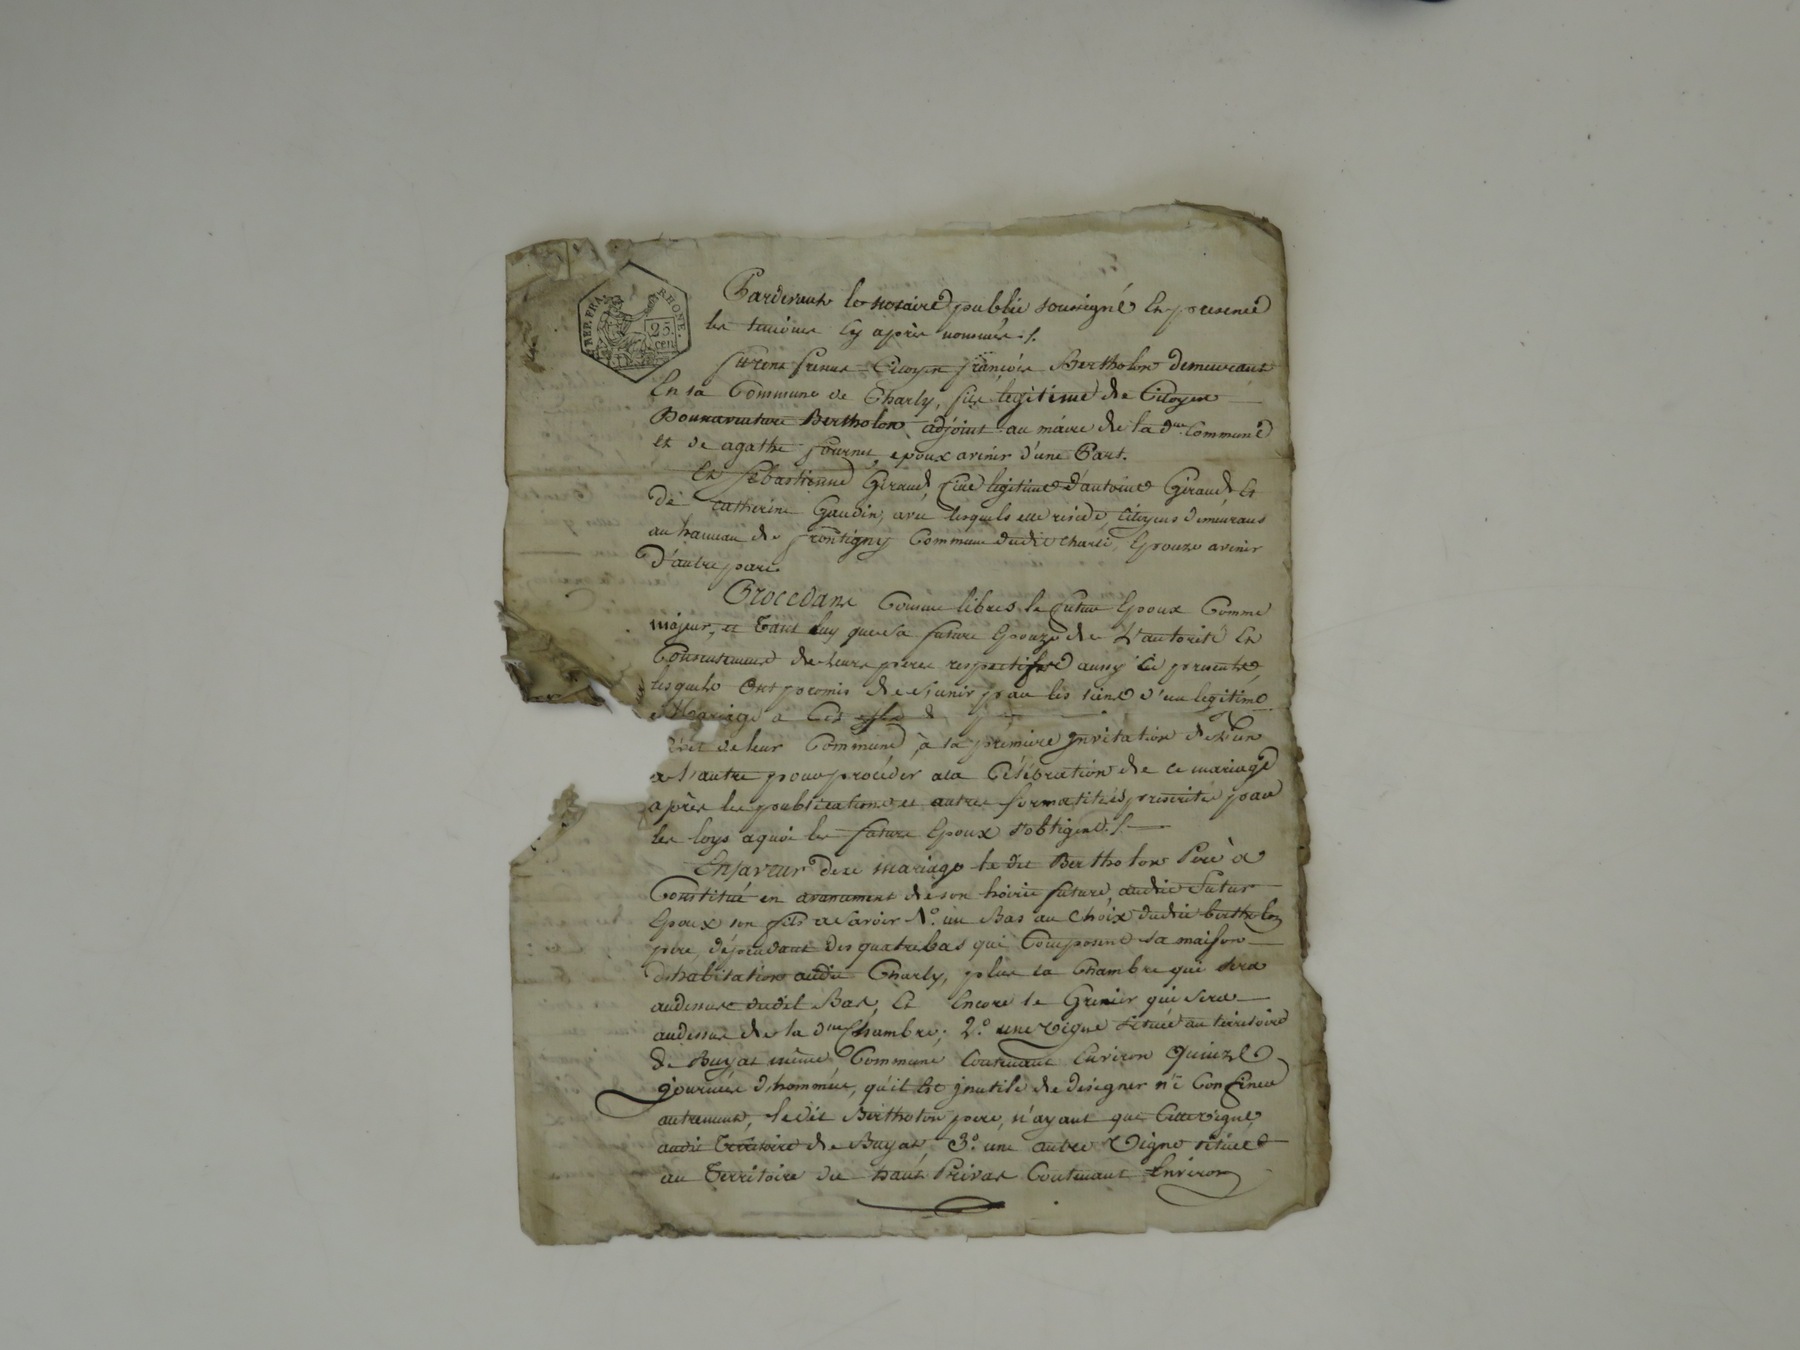 REP. FRA. RHONE.
25.
cen
Pardevant le notaire public soussigné En presence
les temoins cy après nommés ./.
furent presens Citoyen françois Bertholon demeurant
En la Commune de Charly, fils legitime de Citoyen
Bonnaventure Bertholon, adjoint au maire de la d.ne Commune
et de agathe fournet, epoux avenir d'une Part.
Et sébastienne Giraud, fille legitime d'antoine Giraud, Et
de Catherine Gaudin, avec lesquels elle reside, Citoyens demeurans
au hameau de frontigny Commune dudit Charli, Epouze avenir
d'autre part.
Procedans Comme libres le futur Epoux Comme
majeur, et tant luy que sa future Epouze de L'autorité Et
Consentement de leurs peres respectifs aussy Cy presents,
lesquels Ont promis de s'unir par les liens d'un legitime
Mariage a Ces
de leur Commune, à la première jnvitation de L'un
a l'autre pour procéder a la Célébration de ce mariage
après les publications et autres formalités prescrites par
les loys a quoi les futurs Epoux s'obligent ./.
En faveur de ce mariage le dit Bertholon Pere à
Constitué en avancement de son hoirie future, audit futur
Epoux son fils a Savoir 1.° un Bas au Choix dudit bertholon
pere, dépendant des quatre bas qui Composent sa maison
d'habitation audit Charly, plus la Chambre qui sera
audessus dudit Bas, Et Encore le Grenier qui sera
audessus de la d.ne Chambre; 2.° une vigne située au territoire
de Buyat même Commune Contenant Environ Quinze
journées d'hommée, qu'il Est jnutile de designer n'i Confiner
autrement, le dit Bertholon pere, n'ayant que Cette vigne
audit territoire de Buyat, 3.° une autre vigne située
au Territoire du haut Privas Contenant Environ